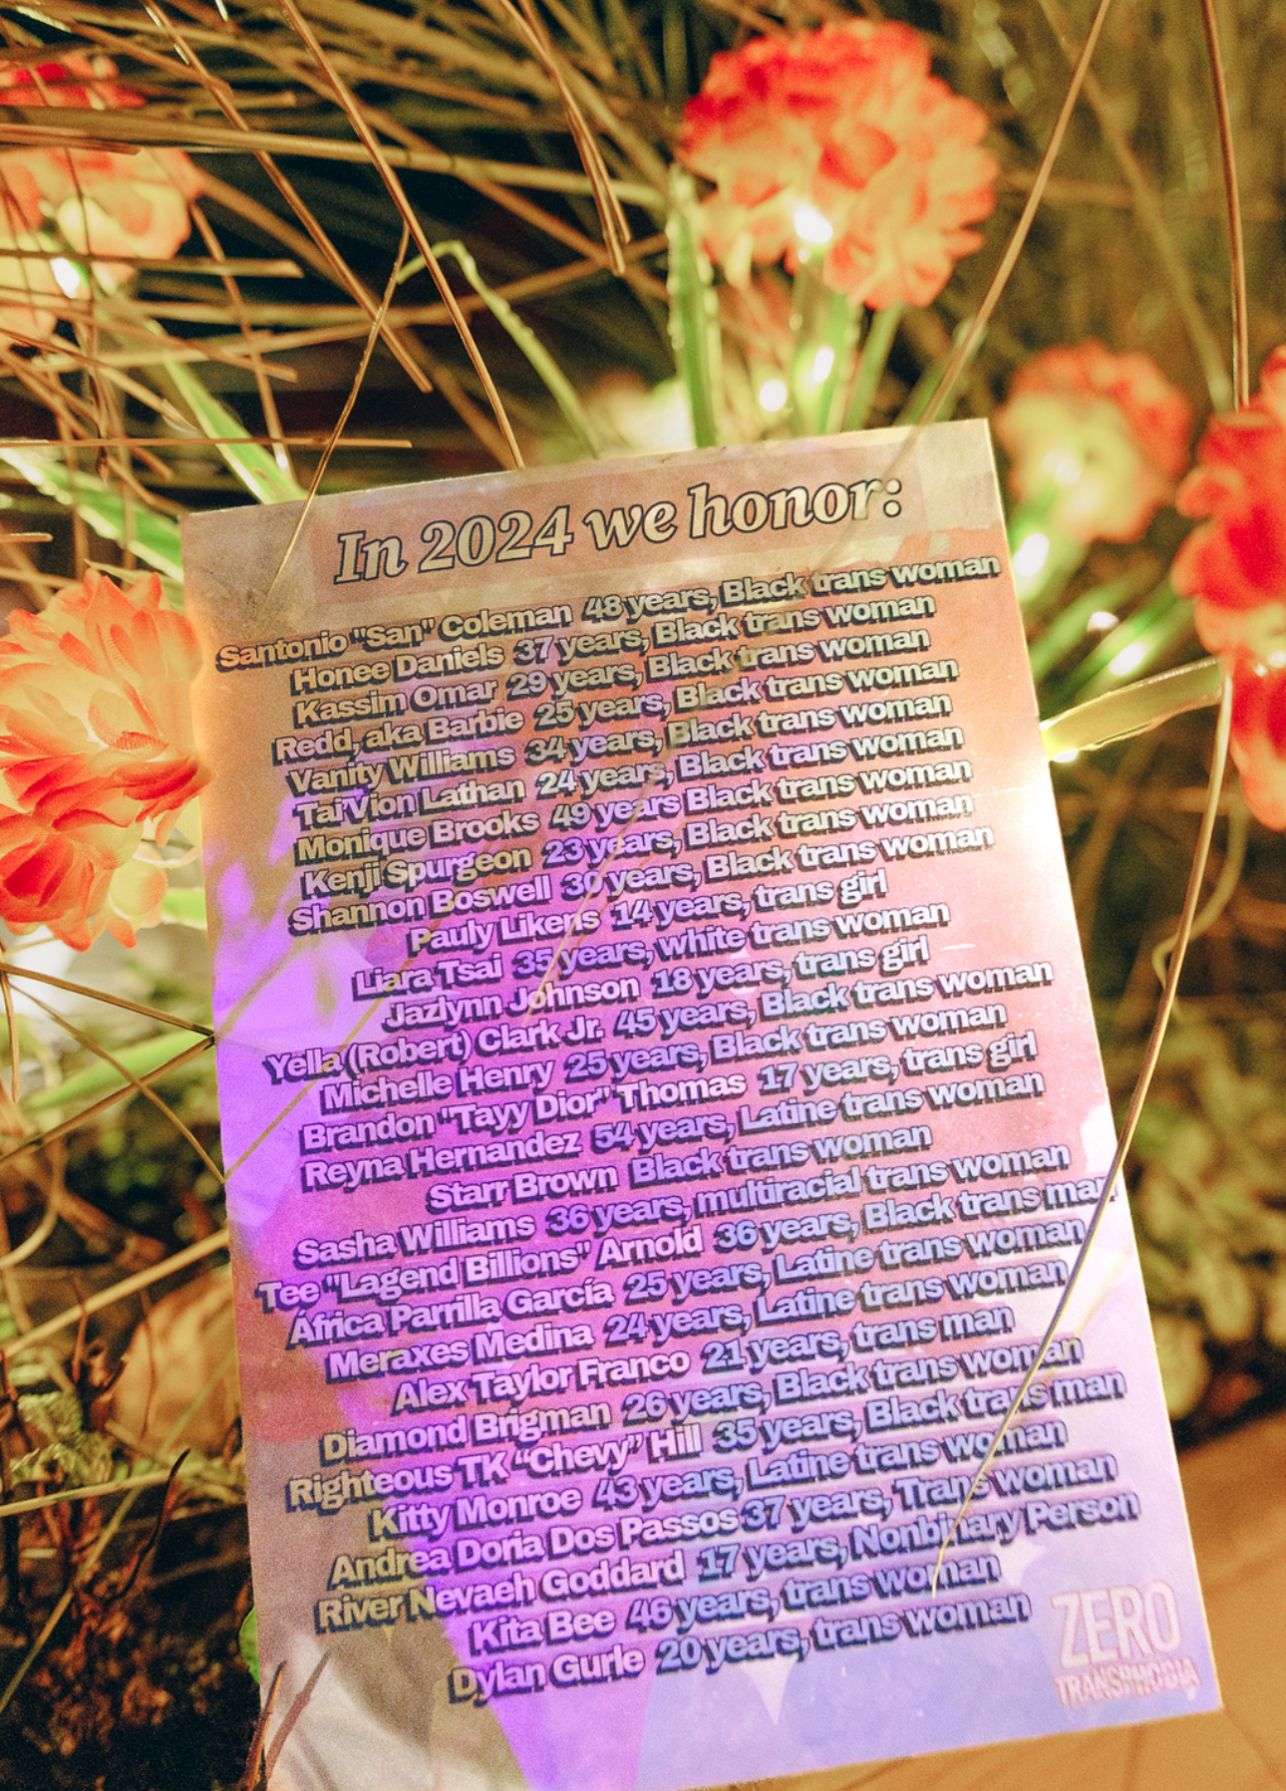 In 2024 we honor:
Santonio "San" Coleman 48 years, Black trans woman
Honee Daniels 37 years, Black trans woman
Kassim Omar 29 years, Black trans woman
Redd, aka Barbie 25 years, Black trans woman
Vanity Williams 34 years, Black trans woman
Tai'Vion Lathan 24 years, Black trans woman
Monique Brooks 49 years Black trans woman
Kenji Spurgeon 23 years, Black trans woman
Shannon Boswell 30 years, Black trans woman
Pauly Likens 14 years, trans girl
Liara Tsai 35 years, white trans woman
Jazlynn Johnson 18 years, trans girl
Yella (Robert) Clark Jr. 45 years, Black trans woman
Michelle Henry 25 years, Black trans woman
Brandon "Tayy Dior" Thomas 17 years, trans girl
Reyna Hernandez 54 years, Latine trans woman
Starr Brown Black trans woman
Sasha Williams 36 years, multiracial trans woman
Tee "Lagend Billions" Arnold 36 years, Black trans man
África Parrilla García 25 years, Latine trans woman
Meraxes Medina 24 years, Latine trans woman
Alex Taylor Franco 21 years, trans man
Diamond Brigman 26 years, Black trans woman
Righteous TK “Chevy” Hill 35 years, Black trans man
Kitty Monroe 43 years, Latine trans woman
Andrea Doria Dos Passos 37 years, Trans woman
River Nevaeh Goddard 17 years, Nonbinary Person
Kita Bee 46 years, trans woman
Dylan Gurle 20 years, trans woman
ZERO
TRANSPHOBIA